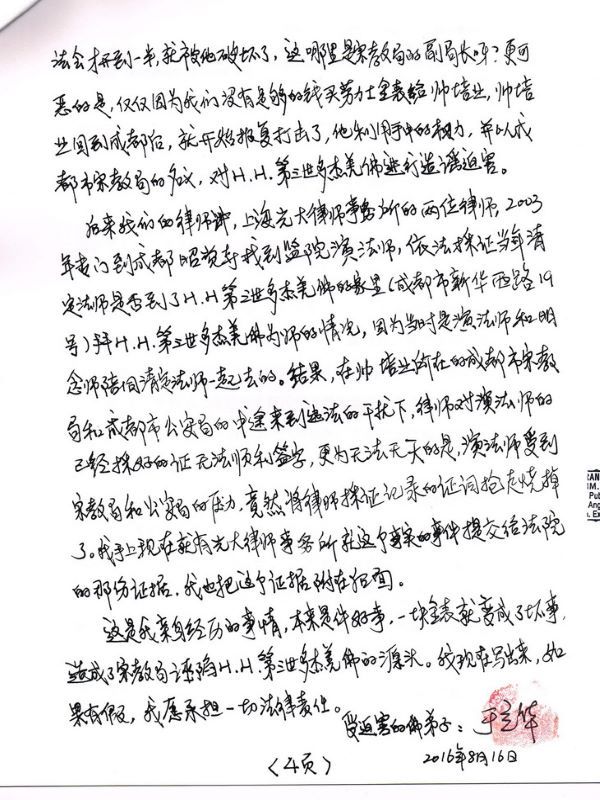 法会才开到一半,就被他破坏了,这哪里是宗教局的副局长呀?更可
恶的是,仅仅因为我们没有足够的钱买劳力士金表给帅培业,帅培
业回到成都后,就开始报复打击了,他利用手中的权力,并以成
都市宗教局的名义,对H.H.第三世多杰羌佛进行造谣迫害。
后来我们的律师,上海光大律师事务所的两位律师,2003
年专门到成都昭觉寺找到监院演法师,依法採证当年清
定法师是否到了H.H.第三世多杰羌佛的家里(成都市新华西路19
号)拜H.H.第三世多杰羌佛为师的情况,因为当时是演法师和明
念师陪同清定法师一起去的。结果,在帅培业所在的成都市宗教
局和成都市公安局的中途来到违法的干扰下,律师对演法师的
已经採好的证无法顺利签字,更为无法无天的是,演法师受到
宗教局和公安局的压力,竟然将律师採证记录的证词抢走烧掉
了。我手上现在就有光大律师事务所就这个事实的事件提交给法院
的那份证据,我也把这个证据附在后面。
这是我亲身经历的事情,本来是件好事,一块金表就变成了坏事,
造成了宗教局诬陷H.H.第三世多杰羌佛的源头。我现在写出来,如
果有假,我愿承担一切法律责任。
受迫害的佛弟子:于立华
2016年8月16日
〈4页〉